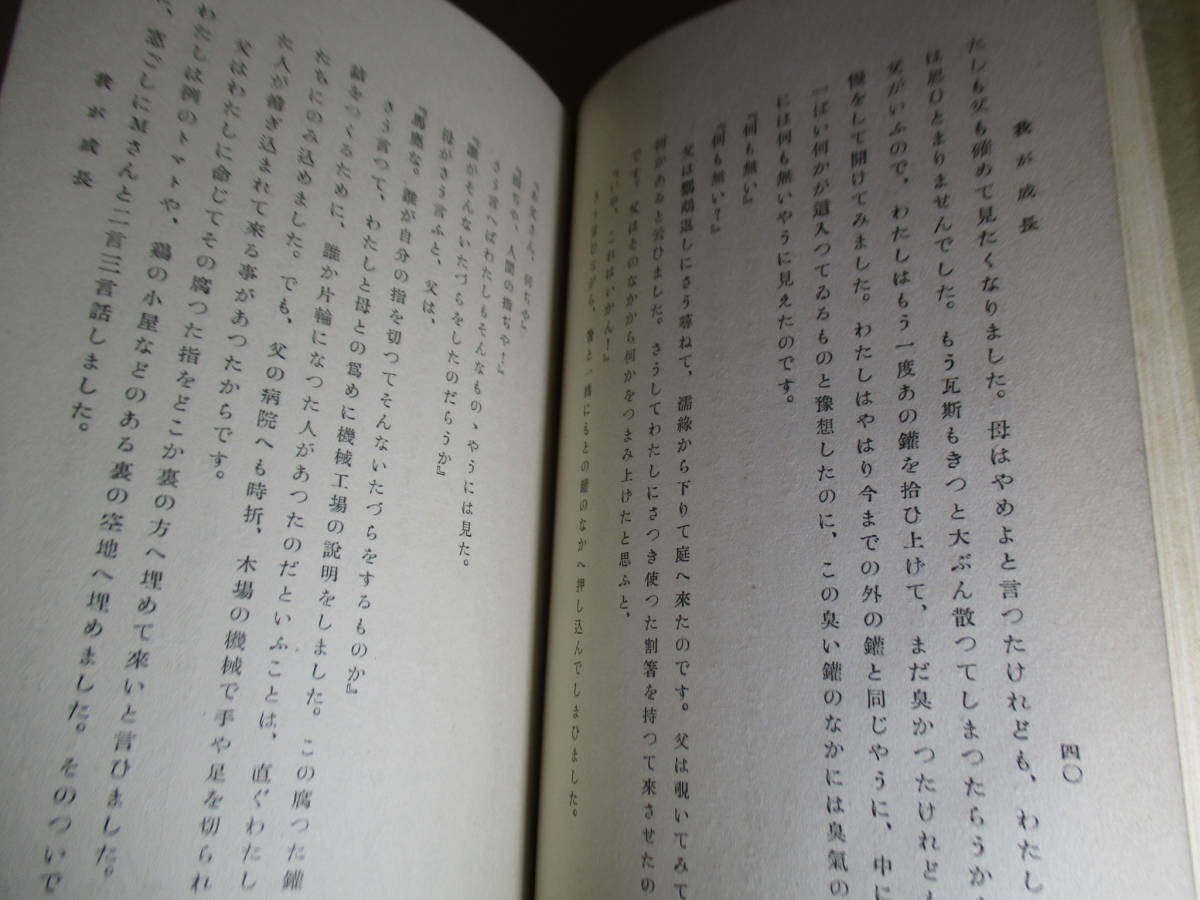 我が成長
四〇
たしも父も確めて見たくなりました。母はやめよと言つたけれども、わたし
は思ひとまりませんでした。もう瓦斯もきつと大ぶん散つてしまつたらうか
父がいふので、わたしはもう一度あの鑵を拾ひ上げて、まだ臭かつたけれども
慢をして開けてみました。わたしはやはり今までの外の鑵と同じやうに、中に
一ぱい何かが這入つてゐるものと豫想したのに、この臭い鑵のなかには臭氣の
には何も無いやうに見えたのです。
『何も無い』
『何も無い?』
父は鸚鵡返しにさう尋ねて、濡緣から下りて庭へ來たのです。父は覗いてみて
何かあると云ひました。さうしてわたしにさつき使つた割箸を持つて來させたの
です。父はそのなかから何かをつまみ上げたと思ふと、
『いや、これはいかん!』
さう言ひながら、箸と一緒にもとの鑵のなかへ押し込んでしまひました。
『お父さん、何ぢや』
『指ぢや、人間の指ぢや!』
さう言へばわたしもそんなものゝやうには見た。
『誰がそんないたづらをしたのだらうか』
母がさう言ふと、父は、
『馬鹿な。誰が自分の指を切つてそんないたづらをするものか』
さう言つて、わたしと母との爲めに機械工場の說明をしました。この腐つた鑵
詰をつくるために、誰か片輪になつた人があつたのだといふことは、直ぐわたし
たちにのみ込めました。でも、父の病院へも時折、木場の機械で手や足を切られ
た人が擔ぎ込まれて來る事があつたからです。
父はわたしに命じてその腐つた指をどこか裏の方へ埋めて來いと言ひました。
わたしは例のトマトや、鷄の小屋などのある裏の空地へ埋めました。そのついで
、窓ごしにMさんと二言三言話しました。
我が成長